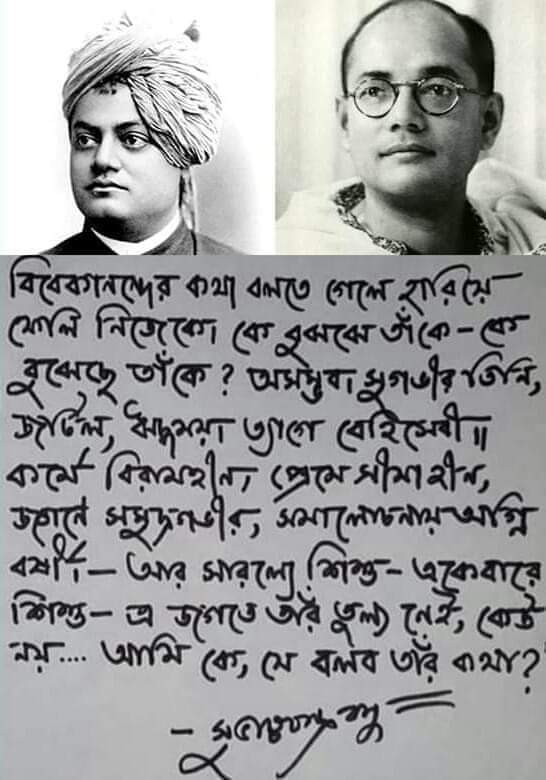 বিবেকানন্দের কথা বলতে গেলে হারিয়ে
ফেলি নিজেকে। কে বুঝবে তাঁকে – কে
বুঝেছে তাঁকে ? অসম্ভব সুগভীর তিনি,
জটিল, ঋদ্ধময়। ত্যাগে বেহিসেবী॥
কর্মে বিরামহীন, প্রেমে সীমাহীন,
জ্ঞানে সমুদ্রগভীর, সমালোচনায় অগ্নি
বর্ষী।– আর সারল্যে শিশু – একেবারে
শিশু – এ জগতে তাঁর তুল্য নেই, কেউ
নয়.... আমি কে, যে বলব তাঁর কথা?
– সুভাষচন্দ্র বসু